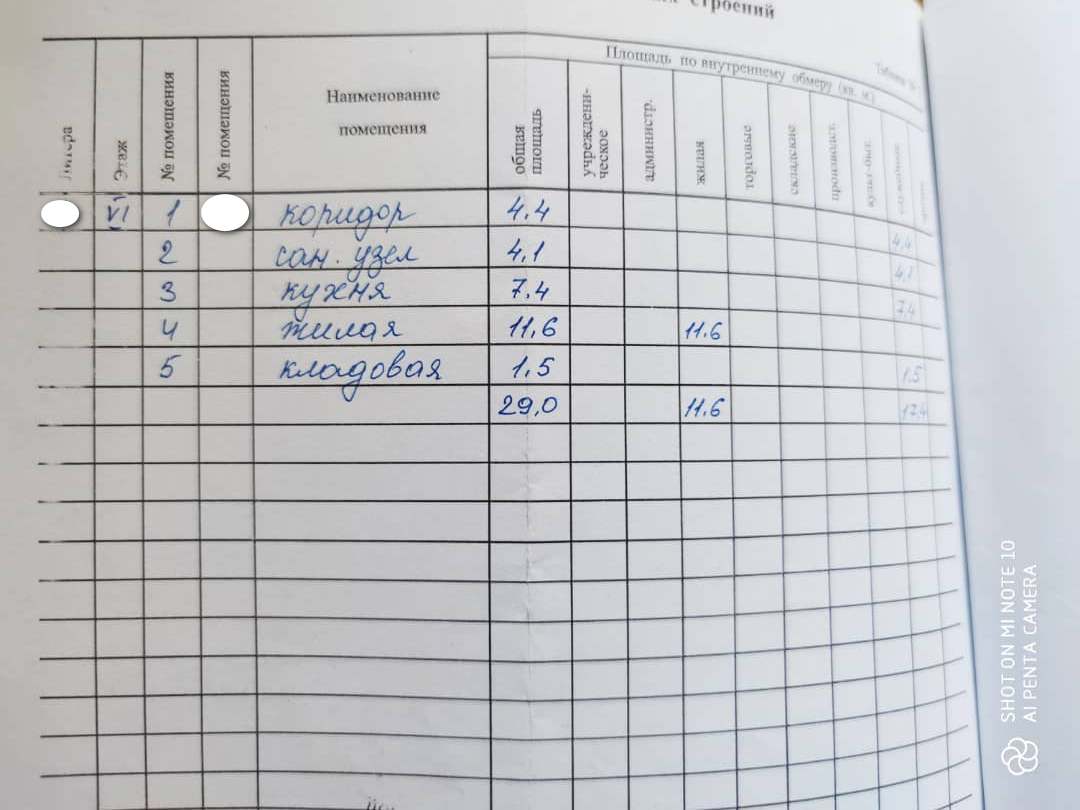 строений
Площадь по внутреннему обмеру (кв. м)
Таблица
Литера
Этаж
№ помещения
№ помещения
Наименование
помещения
общая
площадь
учреждени-
ческое
администр.
жилая
торговые
складские
производст.
культ-быт.
VI 1 коридор 4.4 4,4
2 сан. узел 4,1 4,1
3 кухня 7.4 7,4
4 жилая 11,6 11.6
5 кладовая 1.5 1.5
29,0 11.6 17,4
SHOT ON MI NOTE 10
AI PENTA CAMERA